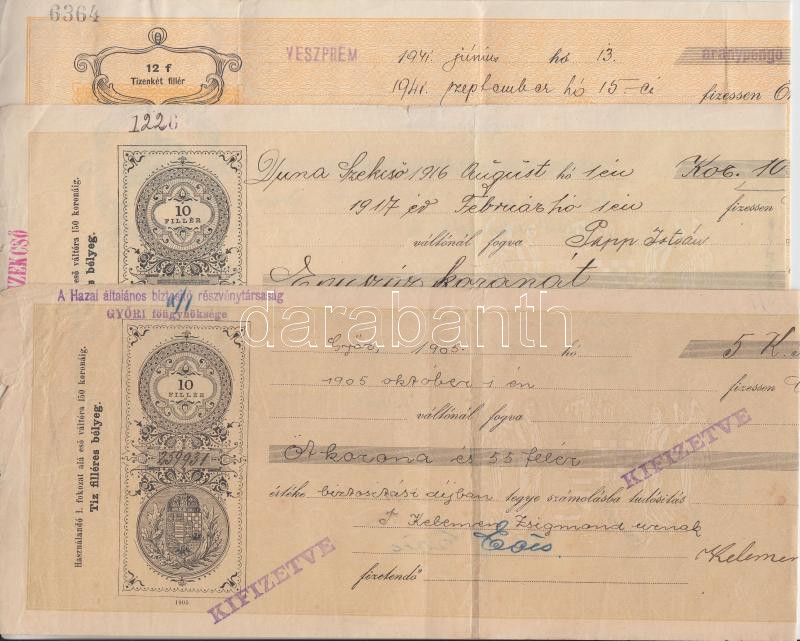 6364
12 f
Tizenkét fillér
VESZPRÉM
1941. június hó 13.
aranypengő
1941. szeptember hó 15-ei
fizessen
1226
Duna Szekcső 1916 August hó 1én
Kor. 10
1917 év Februárhó 1én
fizessen
váltónál fogva Papp István
koronát
10
FILLÉR
eső váltóra 150 koronáig.
béllyeg.
ZEKCSŐ
A Hazai általános biztosító részvénytársaság
GYŐRI főügynöksége
Győr, 1905. hó
5 K.
1905 október 1 én
fizessen
váltónál fogva
Öt korona és 55 fillér
értéke biztosítási díjban tegye számolásba tudósítás
T Kelemen Zsigmond urnak
Kelemen
fizetendő
10
FILLÉR
259931
1905
Használandó 1. fokozat alá eső váltóra 150 koronáig.
Tiz filléres bélyeg.
KIFIZETVE
KIFIZETVE
darabanth